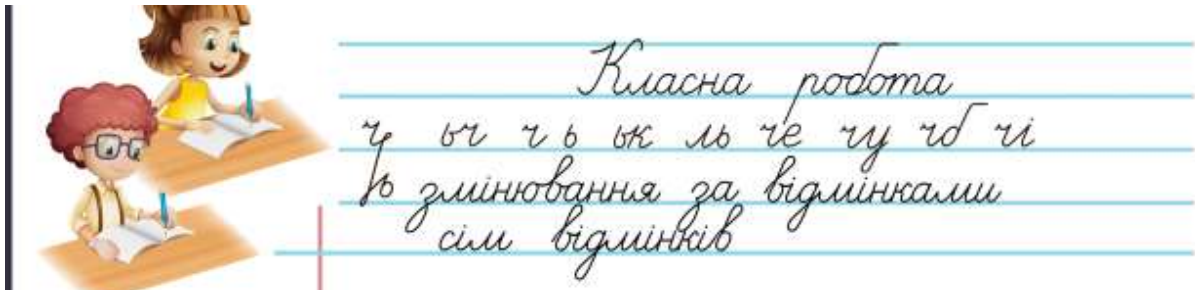 Класна робота
ч ьч ч ь ьк ль че чу чб чі
ь змінювання за відмінками
сім відмінків